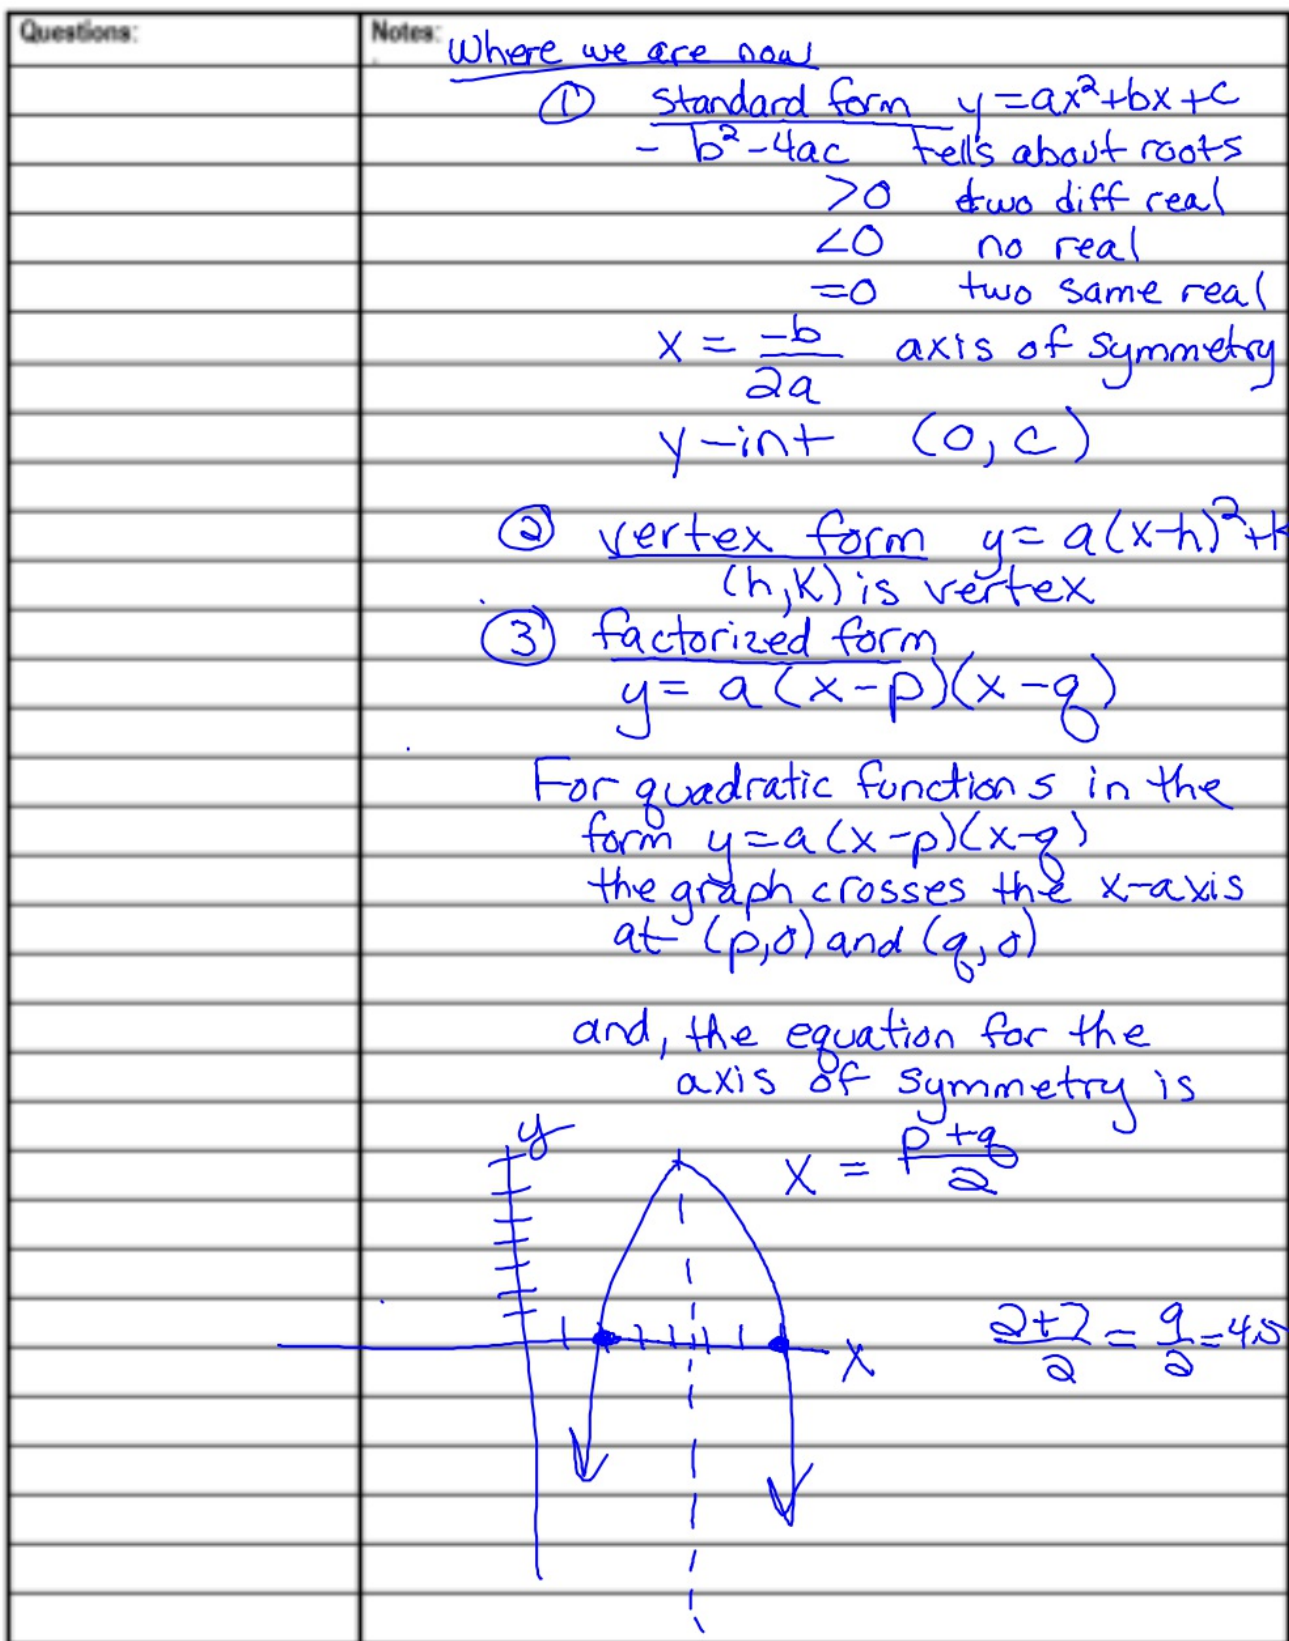 Questions:
Notes:
Where we are now
① standard form y=ax²+bx+c
- b²-4ac tells about roots
>0 two diff real
<0 no real
=0 two same real
x = -b/2a axis of symmetry
y-int (0, c)
② vertex form y= a(x-h)²+k
(h,k) is vertex
③ factorized form
y= a(x-p)(x-q)
For quadratic functions in the
form y=a(x-p)(x-q)
the graph crosses the x-axis
at (p,0) and (q,0)
and, the equation for the
axis of symmetry is
y
x = p+q/2
2+7/2 = 9/2 = 4.5
x